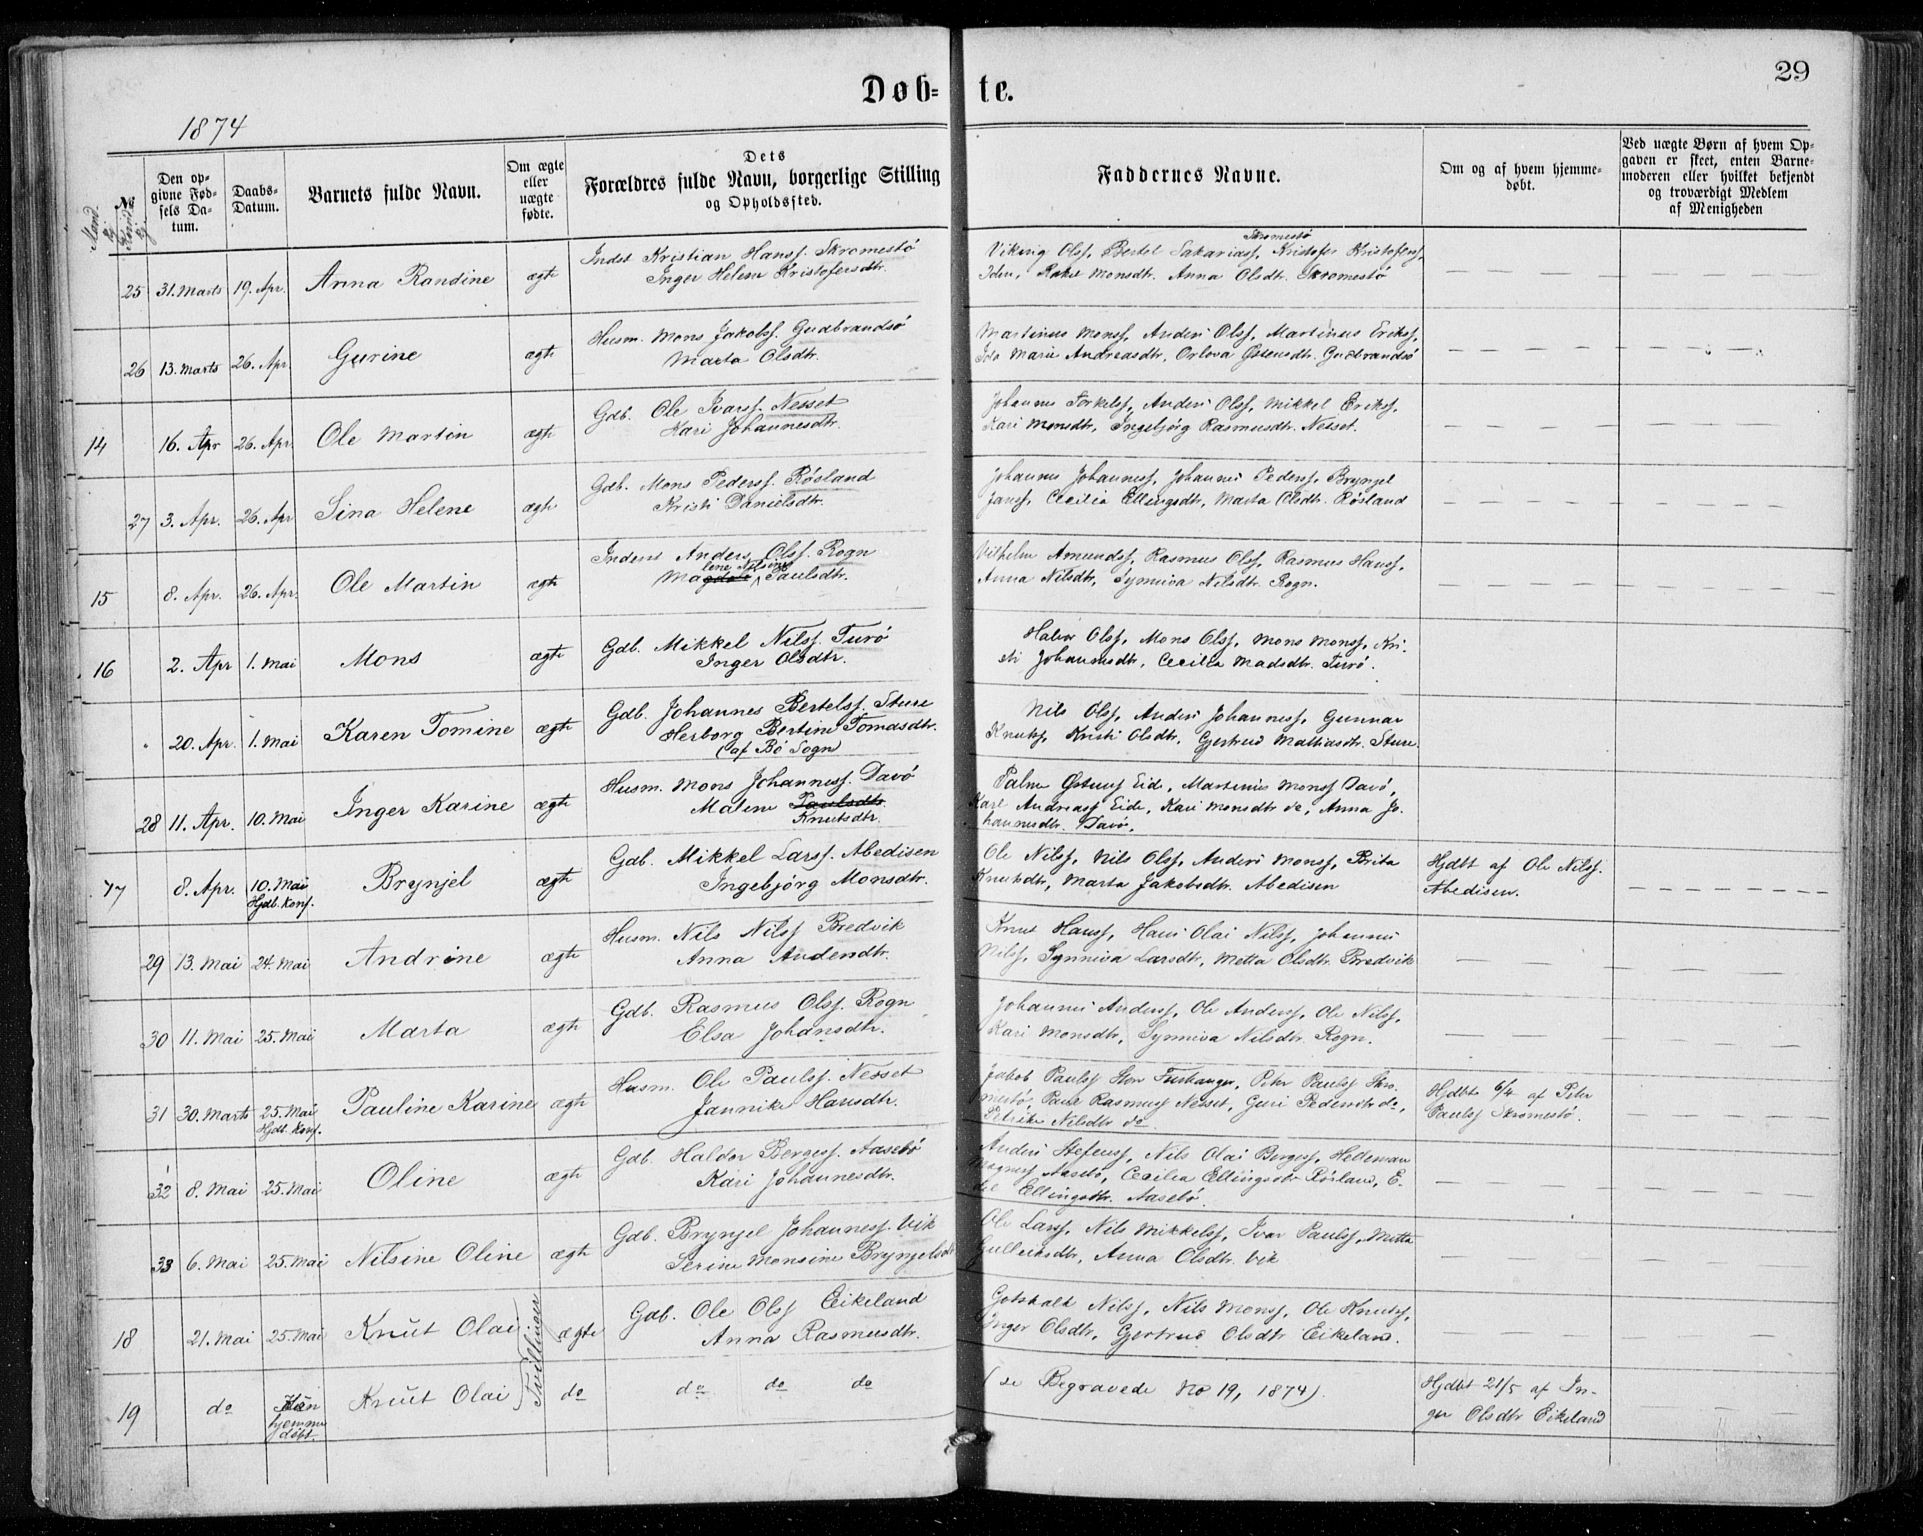 29
Døb-te.
1874
No
Mandkj.
Kvindkj.
Den op-
givne Fød-
sels Da-
tum.
Daabs-
Datum.
Barnets fulde Navn.
Om ægte
eller
uægte
fødte.
Dets
Forældres fulde Navn, borgerlige Stilling
og Opholdssted.
Faddernes Navne.
Om og af hvem hjemme-
døbt.
Ved uægte Børn af hvem Op-
gaven er skeet, enten Barne-
moderen eller hvilket bekjendt
og troværdigt Medlem
af Menigheden
25 31. Marts 19. Apr. Anna Randine ægte
Inderst Kristian Hanss. Skromestø
Inger Helene Kristofersdtr.
Skromestø
Viking Olss, Bertel Sakariass, Kristofer Kristoferss,
Iden, Rakel Monsdtr. Anna Olsdtr. Skromestø
26 13. Marts 26. Apr. Gurine ægte
Husm. Mons Jakobss. Gudbrandsø
Marta Olsdtr.
Martinus Monss, Anders Olss, Martinus Erikss,
Ida Marie Andreasdtr, Orlova Østensdtr. Gudbrandsø
14 16. Apr 26. Apr. Ole Martin ægte
Gdb. Ole Ivarss. Nesset
Kari Johannesdtr.
Johannes Torkelss, Anders Olss, Mikkel Erikss,
Kari Monsdtr, Ingebjörg Rasmusdtr. Nesset.
27 3. Apr. 26. Apr Sina Helene ægte
Gdb. Mons Pederss. Røsland
Kristi Danielsdtr.
Johannes Johanness, Johannes Pederss, Brynjel
Janss, Cecilia Ellingsdtr, Marta Olsdtr. Røsland
15 8. Apr. 26. Apr. Ole Martin ægte
Inderst Anders Olss. Rogn
lene Nilsine
Magdale Paulsdtr.
Vilhelm Amundss, Rasmus Olss, Rasmus Hanss,
Anna Nilsdtr, Synniva Nilsdtr. Rogn.
16 2. Apr 1. Mai Mons ægte
Gdb. Mikkel Nilss. Turø
Inger Olsdtr.
Halvor Olss, Mons Olss, Mons Monss, Kri-
sti Johannesdtr, Cecilia Madsdtr. Turø.
20. Apr. 1. Mai Karen Tomine ægte
Gdb. Johannes Bertelss. Sture
Herborg Bertine Tomasdtr.
(af Bö Sogn)
Nils Olss, Anders Johanness, Gunnar
Knutss, Kristi Olsdtr, Gjertrud Mathiasdtr. Sture
28 11. Apr. 10. Mai Inger Karine ægte
Husm. Mons Johanness. Davø
Malene Paulsdtr.
Knutsdtr.
Palme Østenss Eide, Martinus Monss Davø,
Karl Andreass Eide, Kari Monsdtr do, Anna Jo-
hannesdtr. Davø.
17 8. Apr. 10. Mai Brynjel ægte
Hjdb. konf.
Gdb. Mikkel Larss. Abedisen
Ingebjörg Monsdtr.
Ole Nilss, Nils Olss, Anders Monss, Brita
Knutsdtr, Marta Jakobsdtr. Abedisen
Hjdbt af Ole Nilss.
Abedisen.
29 13. Mai 24. Mai Andrine ægte
Husm. Nils Nilss Bredvik
Anna Andersdtr.
Knut Hanss, Hans Olai Nilss, Johannes
Nilss, Synniva Larsdtr, Metta Olsdtr. Bredvik
30 11. Mai 25. Mai Marta ægte
Gdb. Rasmus Olss. Rogn
Elsa Johansdtr.
Johannes Anderss, Ole Anderss, Ole Nilss,
Kari Monsdtr, Synniva Nilsdtr Rogn.
31 30. Marts 25. Mai Pauline Karine ægte
Hjdb. konf.
Husm. Ole Paulss. Nesset
Jannike Hansdtr.
Jakob Paulss Store Turhanger, Peter Paulss Skro-
mestø, Paul Rasmuss Nesset, Guri Pedersdtr do,
Petrike Nilsdtr do
Hjdbt 6/4 af Peter
Paulss Skromestø.
32 8. Mai 25. Mai Oline ægte
Gdb. Haldor Bergess. Aasebø
Kari Johannesdtr.
Anders Stefenss, Nils Olai Bergess, Helleman
Magness Aasebø, Cecilia Ellingsdtr Røsland, E-
del Ellingsdtr. Aasebø
33 6. Mai 25. Mai Nilsine Oline ægte
Gdb. Brynjel Johanness. Vik
Serine Monsine Brynjelsdtr
Ole Larss, Nils Mikkelss, Ivar Paulss, Metta
Gulleiksdtr, Anna Olsdtr. Vik
18 21. Mai 25. Mai Knut Olai ægte
Tvillinger
Gdb. Ole Olss Eikeland
Anna Rasmusdtr.
Gotskalk Nilss, Nils Monss, Ole Knutss,
Inger Olsdtr, Gjertrud Olsdtr Eikeland.
19 do Kun Knut Olai do
hjemme
døbt.
do do do
(se Begravede No 19, 1874).
Hjdbt 21/5 af In-
ger Olsdtr Eikeland